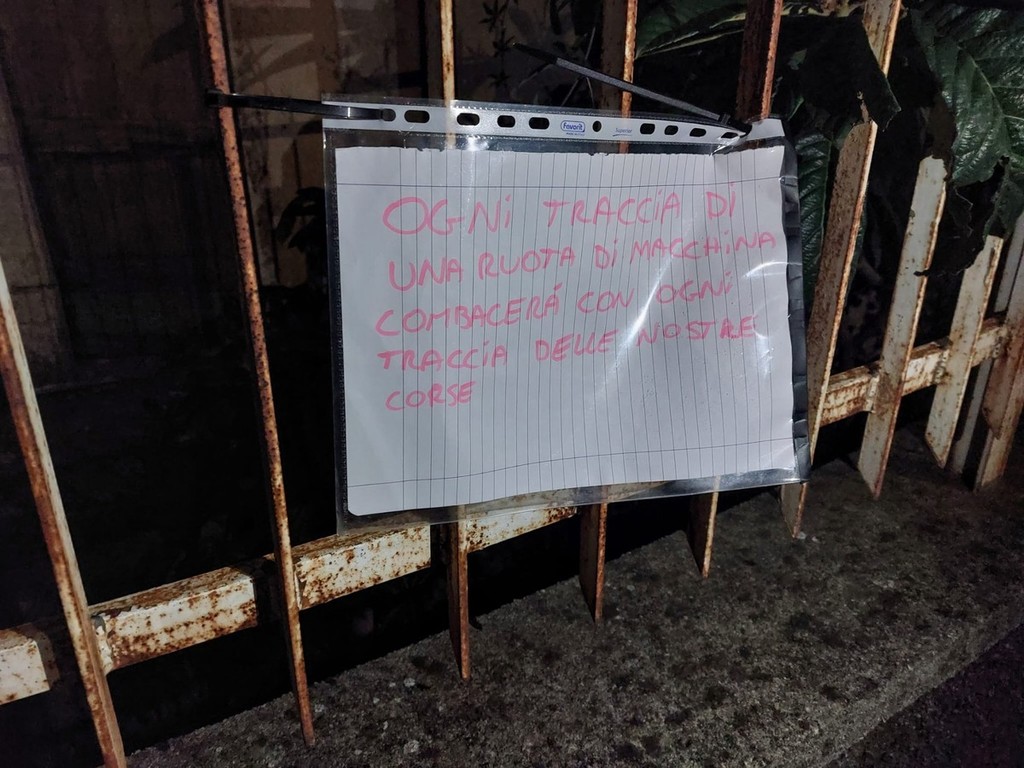 Favorit
OGNi TRACCiA Di
UNA RUOTA Di MACCHiNA
COMBACERÁ CON OGNi
TRACCiA DELLE NOSTRE
CORSE